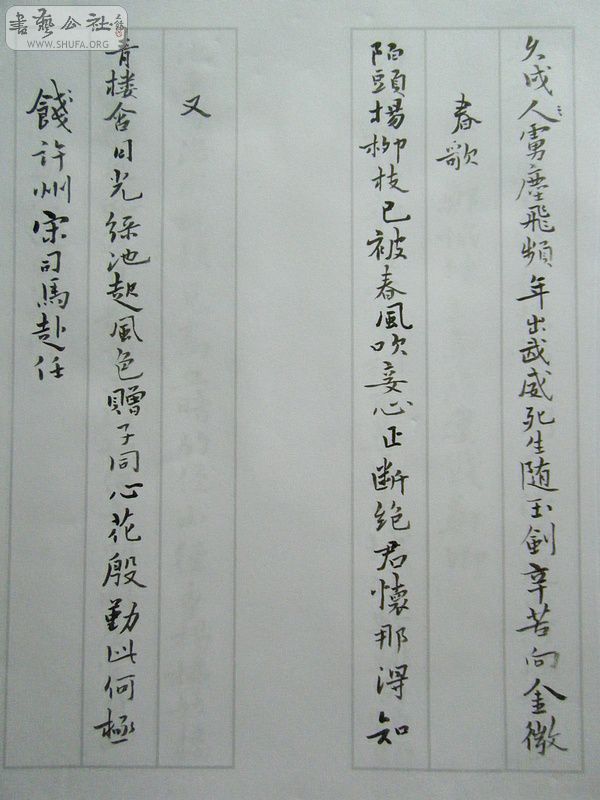 久戍人虜塵飛頻年出武威死生随玉劍辛苦向金微
春歌
陌頭楊柳枝已被春風吹妾心正断绝君懷那得知
又
青楼含日光緑池起風色贈子同心花殷勤此何極
餞許州宋司馬赴任
書藝公社
WWW.SHUFA.ORG